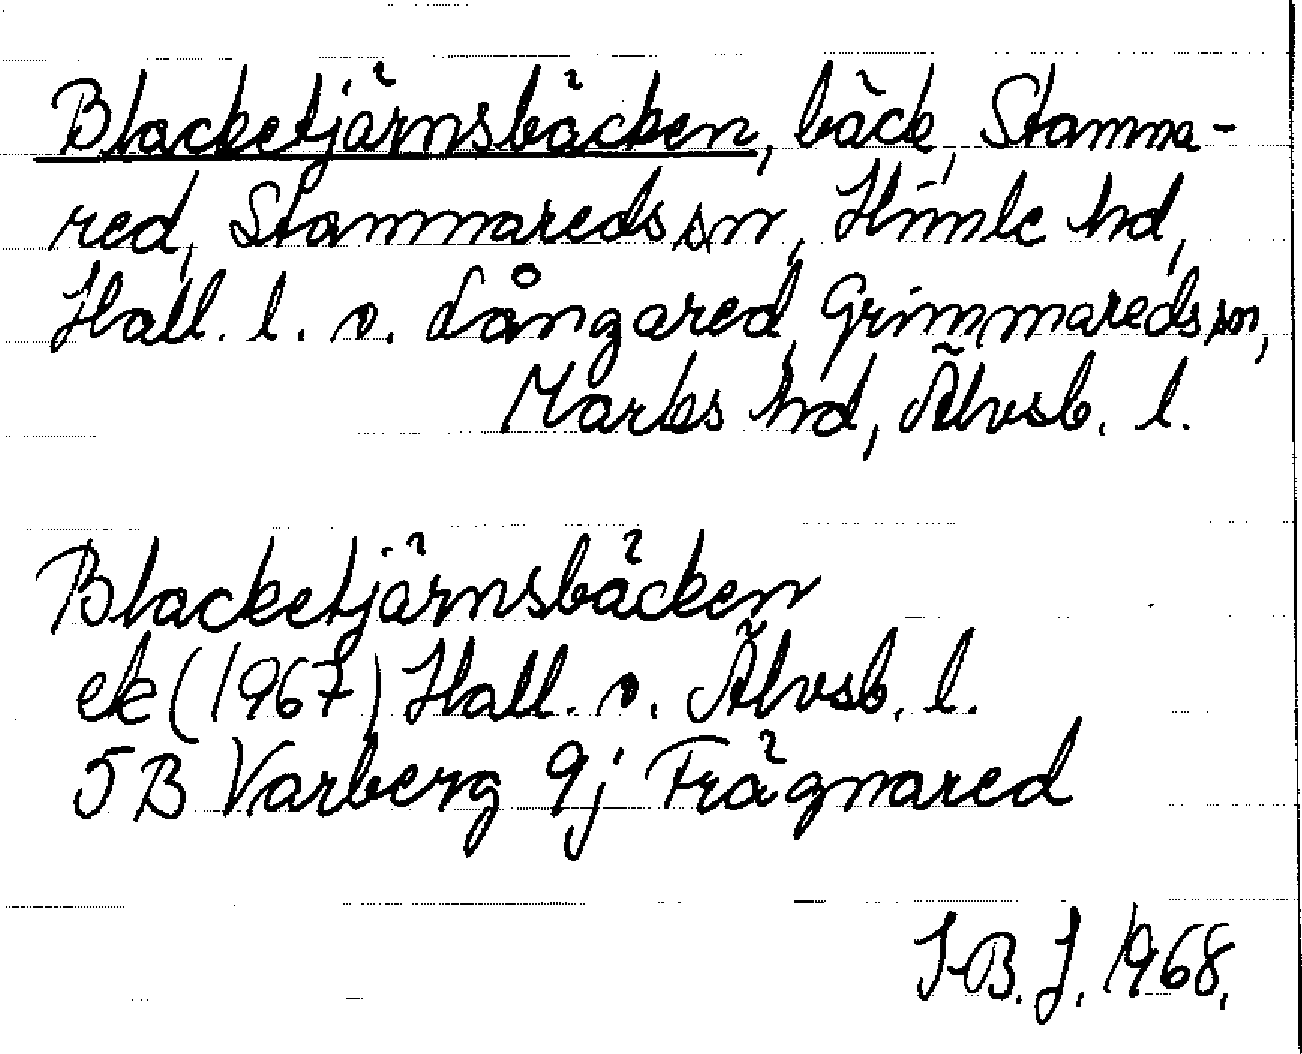 Blacketjärnsbäcken, bäck, Stamma-
red, Stammareds sn, Himle hd,
Hall. l. o. Långared, Grimmareds sn,
Marks hd, Älvsb. l.
Blacketjärnsbäcken
ek (1967) Hall. o. Älvsb. l.
5B Varberg 9j Frägnared
I-B. J. 1968.